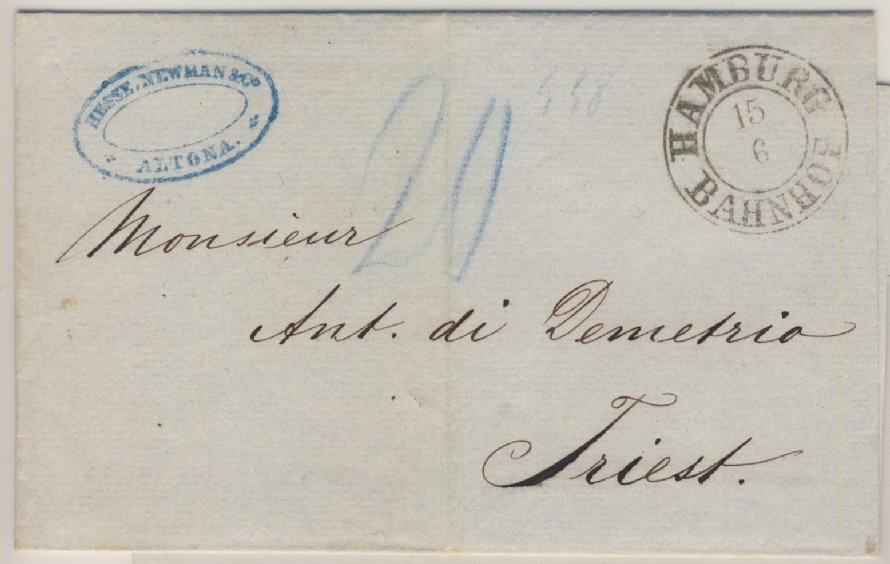 HESSE, NEWMAN & Co
ALTONA.
HAMBURG
15
6
BAHNHOF
20
Monsieur
Ant. di Demetrio
Triest.